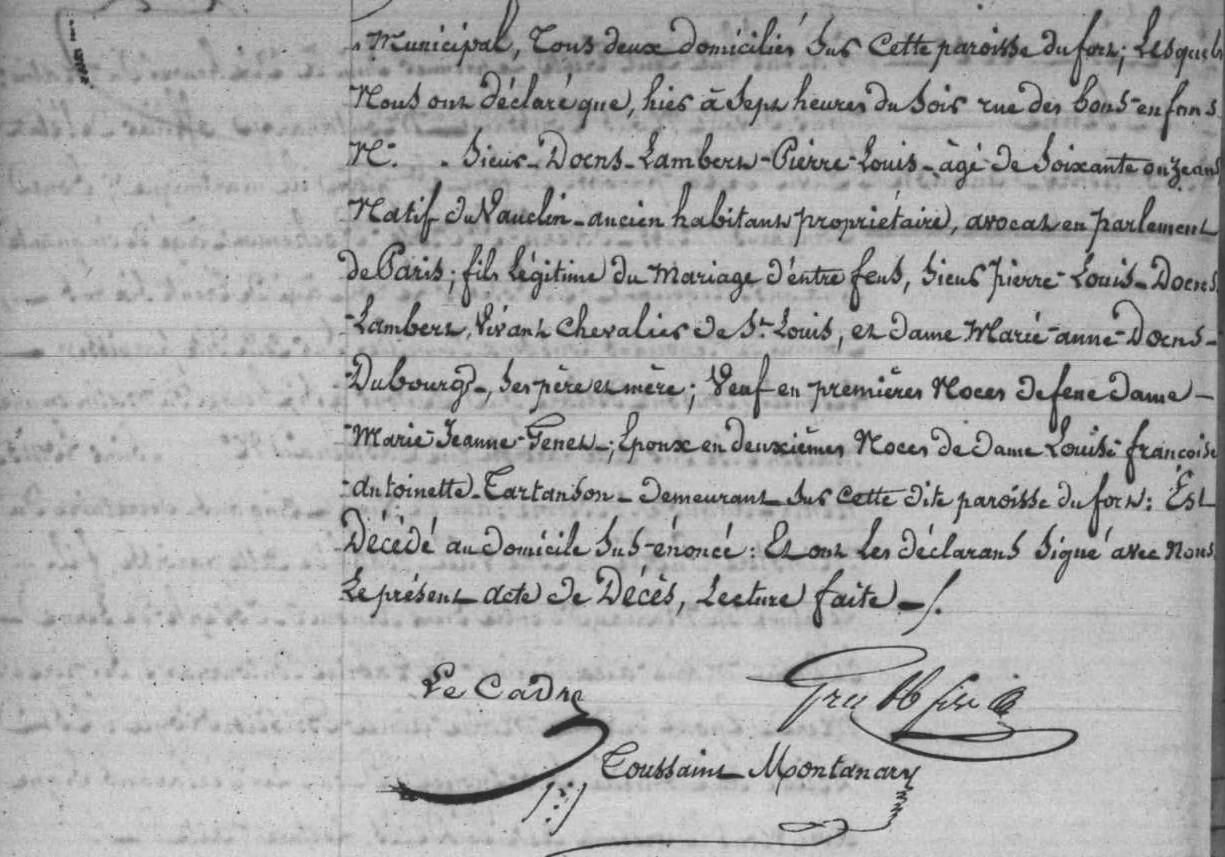 Municipal, Tous deux domiciliés sur cette paroisse du fort; Lesquels
Nous ont déclaré que, hier à Sept heures du Soir rue des bons-enfans
N°. . Sieur-Doens-Lambert-Pierre-Louis-âgé de Soixante onze ans
Natif du Vauclin-ancien habitant propriétaire, avocat en parlement
de Paris; fils légitime du Mariage d'éntre feus, Sieur pierre-Louis-Doens
-Lambert, Vivant Chevalier de St. Louis, et dame Marie-anne-Doens-
Dubourg-, Ses père et mère; Veuf en premières Noces de feue dame-
-Marie-Jeanne-Genet-; Epoux en deuxièmes Noces de dame Louise-françoise
-antoinette-Tartanson-demeurant sur cette dite paroisse du fort: Est
Décédé au domicile sus-énoncé: Et ont les déclarans Signé avec Nous
Le présent acte de Décès, Lecture faite-/.
Le Cadre
Toussaint Montanary